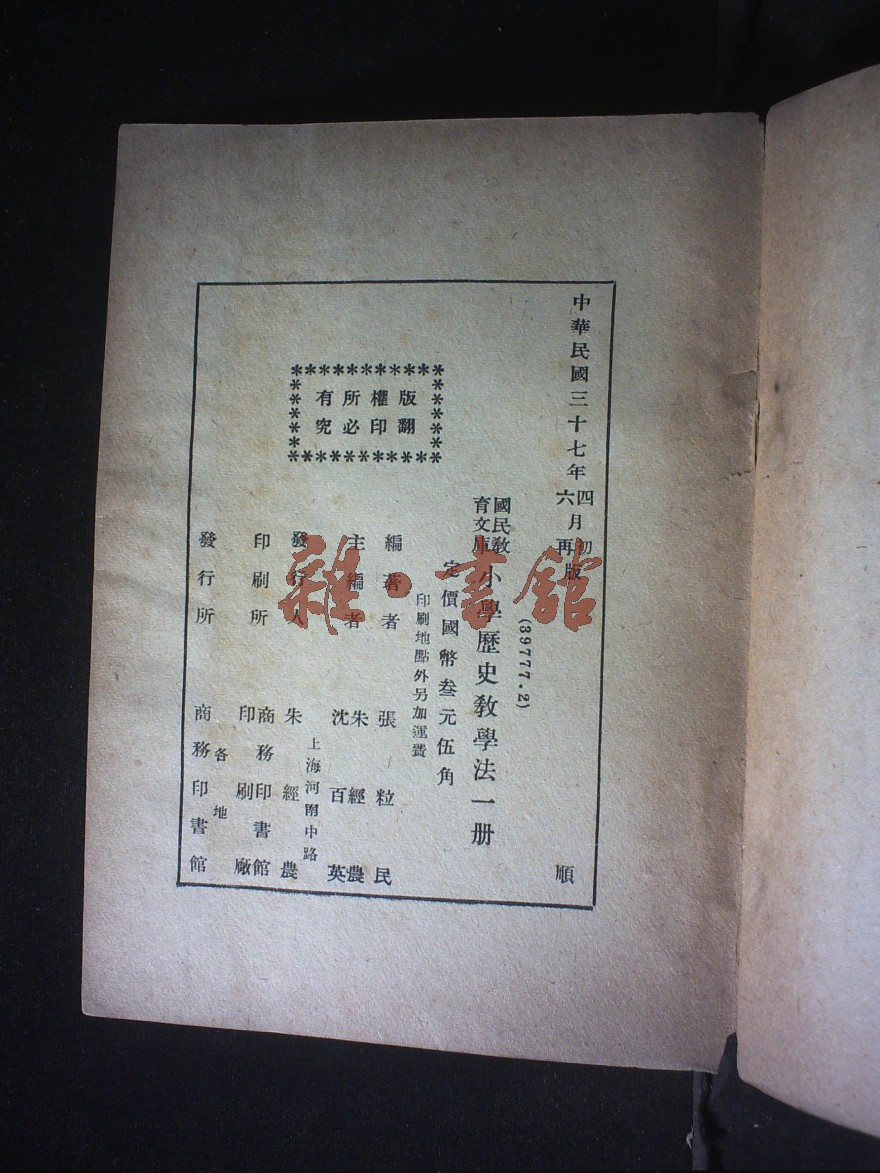 中華民國三十七年四月初版
六月再版
(39777·2)
國民敎育文庫 小學歷史教學法一册
定價國幣叁元伍角
印刷地點外另加運費
版權所有
翻印必究
編著者 張粒民
主編者 朱經農
沈百英
上海河南中路
發行人 朱經農
印刷所 商務印書館
印刷廠
各地
發行所 商務印書館
順
雜·書館